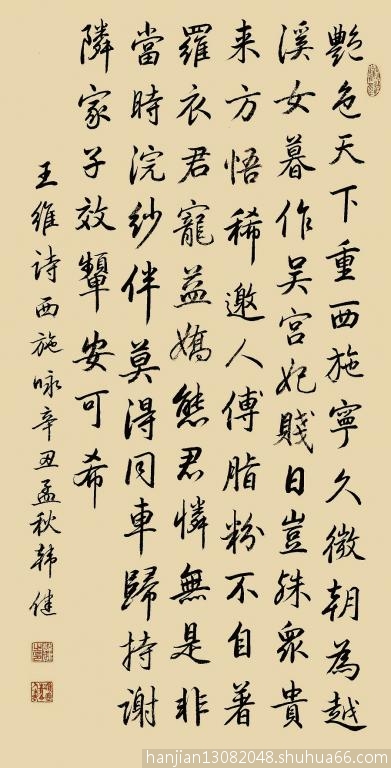 艷色天下重西施寧久微朝為越
溪女暮作吴宫妃賤日豈殊衆貴
来方悟稀邀人傅脂粉不自著
羅衣君寵益嬌態君憐無是非
當時浣紗伴莫得同車歸持谢
隣家子效顰安可希
王維诗西施咏辛丑孟秋韩健
hanjian13082048.shuhua66.com